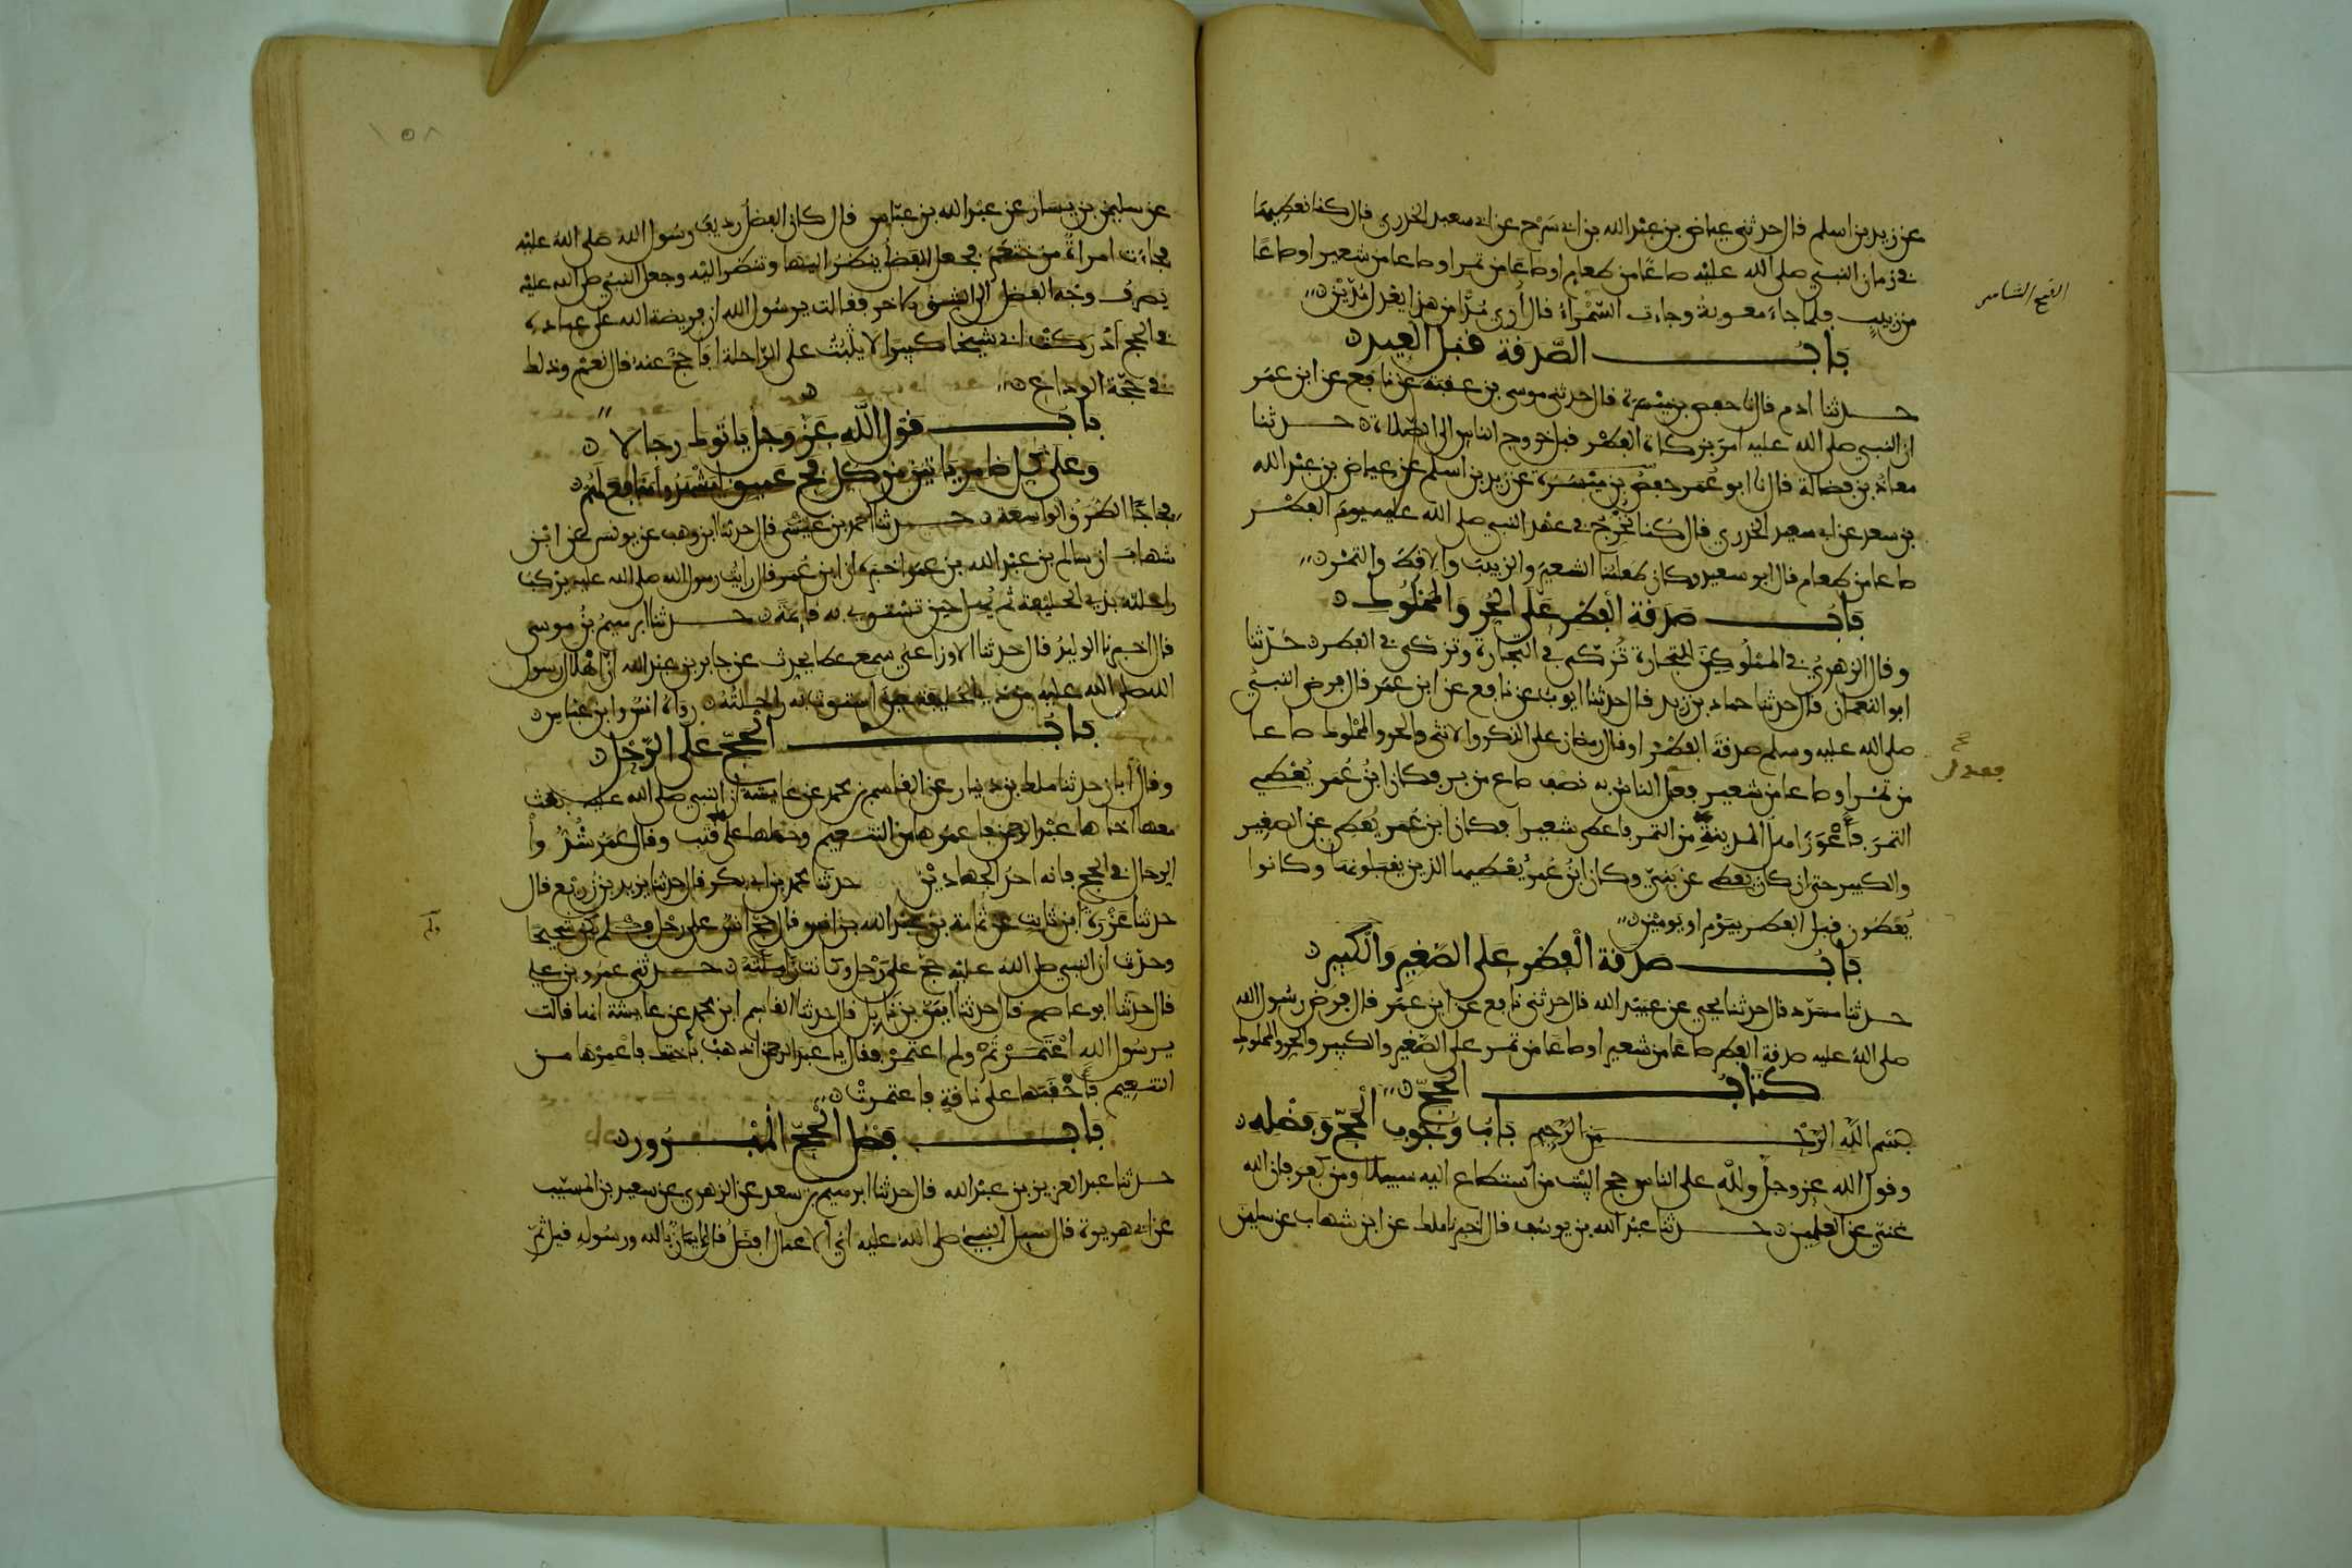 عن زيد بن اسلم قال حدثني عياض بن عبد الله بن ابي سرح عن ابي سعيد الخدري قال كنا نعطيها
في زمان النبي صلى الله عليه صاعا من طعام او صاعا من تمر او صاعا من شعير او صاعا
من زبيب فلما جاء معوية وجاءت السمراء قال أرى مدا من هذا يعدل مدين
باب الصدقة قبل العيد
حدثنا ادم قال نا حفص بن ميسرة قال حدثني موسى بن عقبة عن نافع عن ابن عمر
ان النبي صلى الله عليه امر بزكاة الفطر قبل خروج الناس الى الصلاة حدثنا
معاذ بن فضالة قال نا ابو عمر حفص بن ميسرة عن زيد بن اسلم عن عياض بن عبد الله
بن سعد عن ابي سعيد الخدري قال كنا نخرج في عهد النبي صلى الله عليه يوم الفطر
صاعا من طعام قال ابو سعيد وكان طعامنا الشعير والزبيب والاقط والتمر
باب صدقة الفطر على الحر والمملوك
وقال الزهري في المملوكين للتجارة تزكى في التجارة وتزكى في الفطر حدثنا
ابو النعمان قال حدثنا حماد بن زيد قال حدثنا ايوب عن نافع عن ابن عمر قال فرض النبي
صلى الله عليه وسلم صدقة الفطر او قال رمضان على الذكر والانثى والحر والمملوك صاعا
من تمر او صاعا من شعير فعدل الناس به نصف صاع من بر فكان ابن عمر يعطي
التمر فأعوز اهل المدينة من التمر فاعطى شعيرا فكان ابن عمر يعطي عن الصغير
والكبير حتى ان كان يعطي عن بني وكان ابن عمر يعطيها الذين يقبلونها وكانوا
يعطون قبل الفطر بيوم او يومين
باب صدقة الفطر على الصغير والكبير
حدثنا مسدد قال حدثنا يحيى عن عبيد الله قال حدثني نافع عن ابن عمر قال فرض رسول الله
صلى الله عليه صدقة الفطر صاعا من شعير او صاعا من تمر على الصغير والكبير والحر والمملوك
كتاب الحج
بسم الله الرحمن الرحيم باب وجوب الحج وفضله
وقول الله عز وجل ولله على الناس حج البيت من استطاع اليه سبيلا ومن كفر فان الله
غني عن العلمين حدثنا عبد الله بن يوسف قال اخبرنا ملك عن ابن شهاب عن سليمن
فعدل
١٥٨
عن سليمن بن يسار عن عبد الله بن عباس قال كان الفضل رديف رسول الله صلى الله عليه
فجاءت امراة من خثعم فجعل الفضل ينظر اليها وتنظر اليه وجعل النبي صلى الله عليه
يصرف وجه الفضل الى الشق الاخر فقالت يرسول الله ان فريضة الله على عباده
في الحج ادركت ابي شيخا كبيرا لا يثبت على الراحلة افاحج عنه قال نعم وذلك
في حجة الوداع
باب قول الله عز وجل ياتوك رجالا
وعلى كل ضامر ياتين من كل فج عميق ليشهدوا منافع لهم
فجاجا الطرق الواسعة حدثنا احمد بن عيسى قال حدثنا ابن وهب عن يونس عن ابن
شهاب ان سالم بن عبد الله بن عمر اخبره ان ابن عمر قال رايت رسول الله صلى الله عليه يركب
راحلته بذي الحليفة ثم يهل حين تستوي به قائمة حدثنا ابرهيم بن موسى
قال اخبرنا الوليد قال حدثنا الاوزاعي سمع عطا يحدث عن جابر بن عبد الله ان اهلال رسول
الله صلى الله عليه من ذي الحليفة حين استوت به راحلته رواه انس وابن عباس
باب الحج على الرحل
وقال أبان حدثنا ملك بن دينار عن القاسم بن محمد عن عايشة ان النبي صلى الله عليه بعث
معها اخاها عبد الرحمن فاعمرها من التنعيم وحملها على قتب وقال عمر شدوا
الرحال في الحج فانه احد الجهادين حدثنا محمد بن ابي بكر قال حدثنا يزيد بن زريع قال
حدثنا عزرة ابن ثابت عن ثمامة بن عبد الله بن انس قال حج انس على رحل ولم يكن شحيحا
وحدث ان النبي صلى الله عليه حج على رحل وكانت زاملته حدثني عمرو بن علي
قال حدثنا ابو عاصم قال حدثنا ايمن بن نابل قال حدثنا القاسم ابن محمد عن عايشة انها قالت
يرسول الله اعتمرتم ولم اعتمر فقال يا عبد الرحمن اذهب باختك فاعمرها من
التنعيم فأحقبها على ناقة فاعتمرت
باب فضل الحج المبرور
حدثنا عبد العزيز بن عبد الله قال حدثنا ابرهيم بن سعد عن الزهري عن سعيد بن المسيب
عن ابي هريرة قال سيل النبي صلى الله عليه اي الاعمال افضل قال ايمان بالله ورسوله قيل ثم
ولم